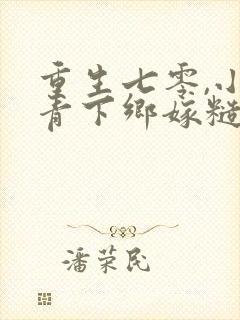 重生七零,小
青下鄉嫁糙
潘荣民